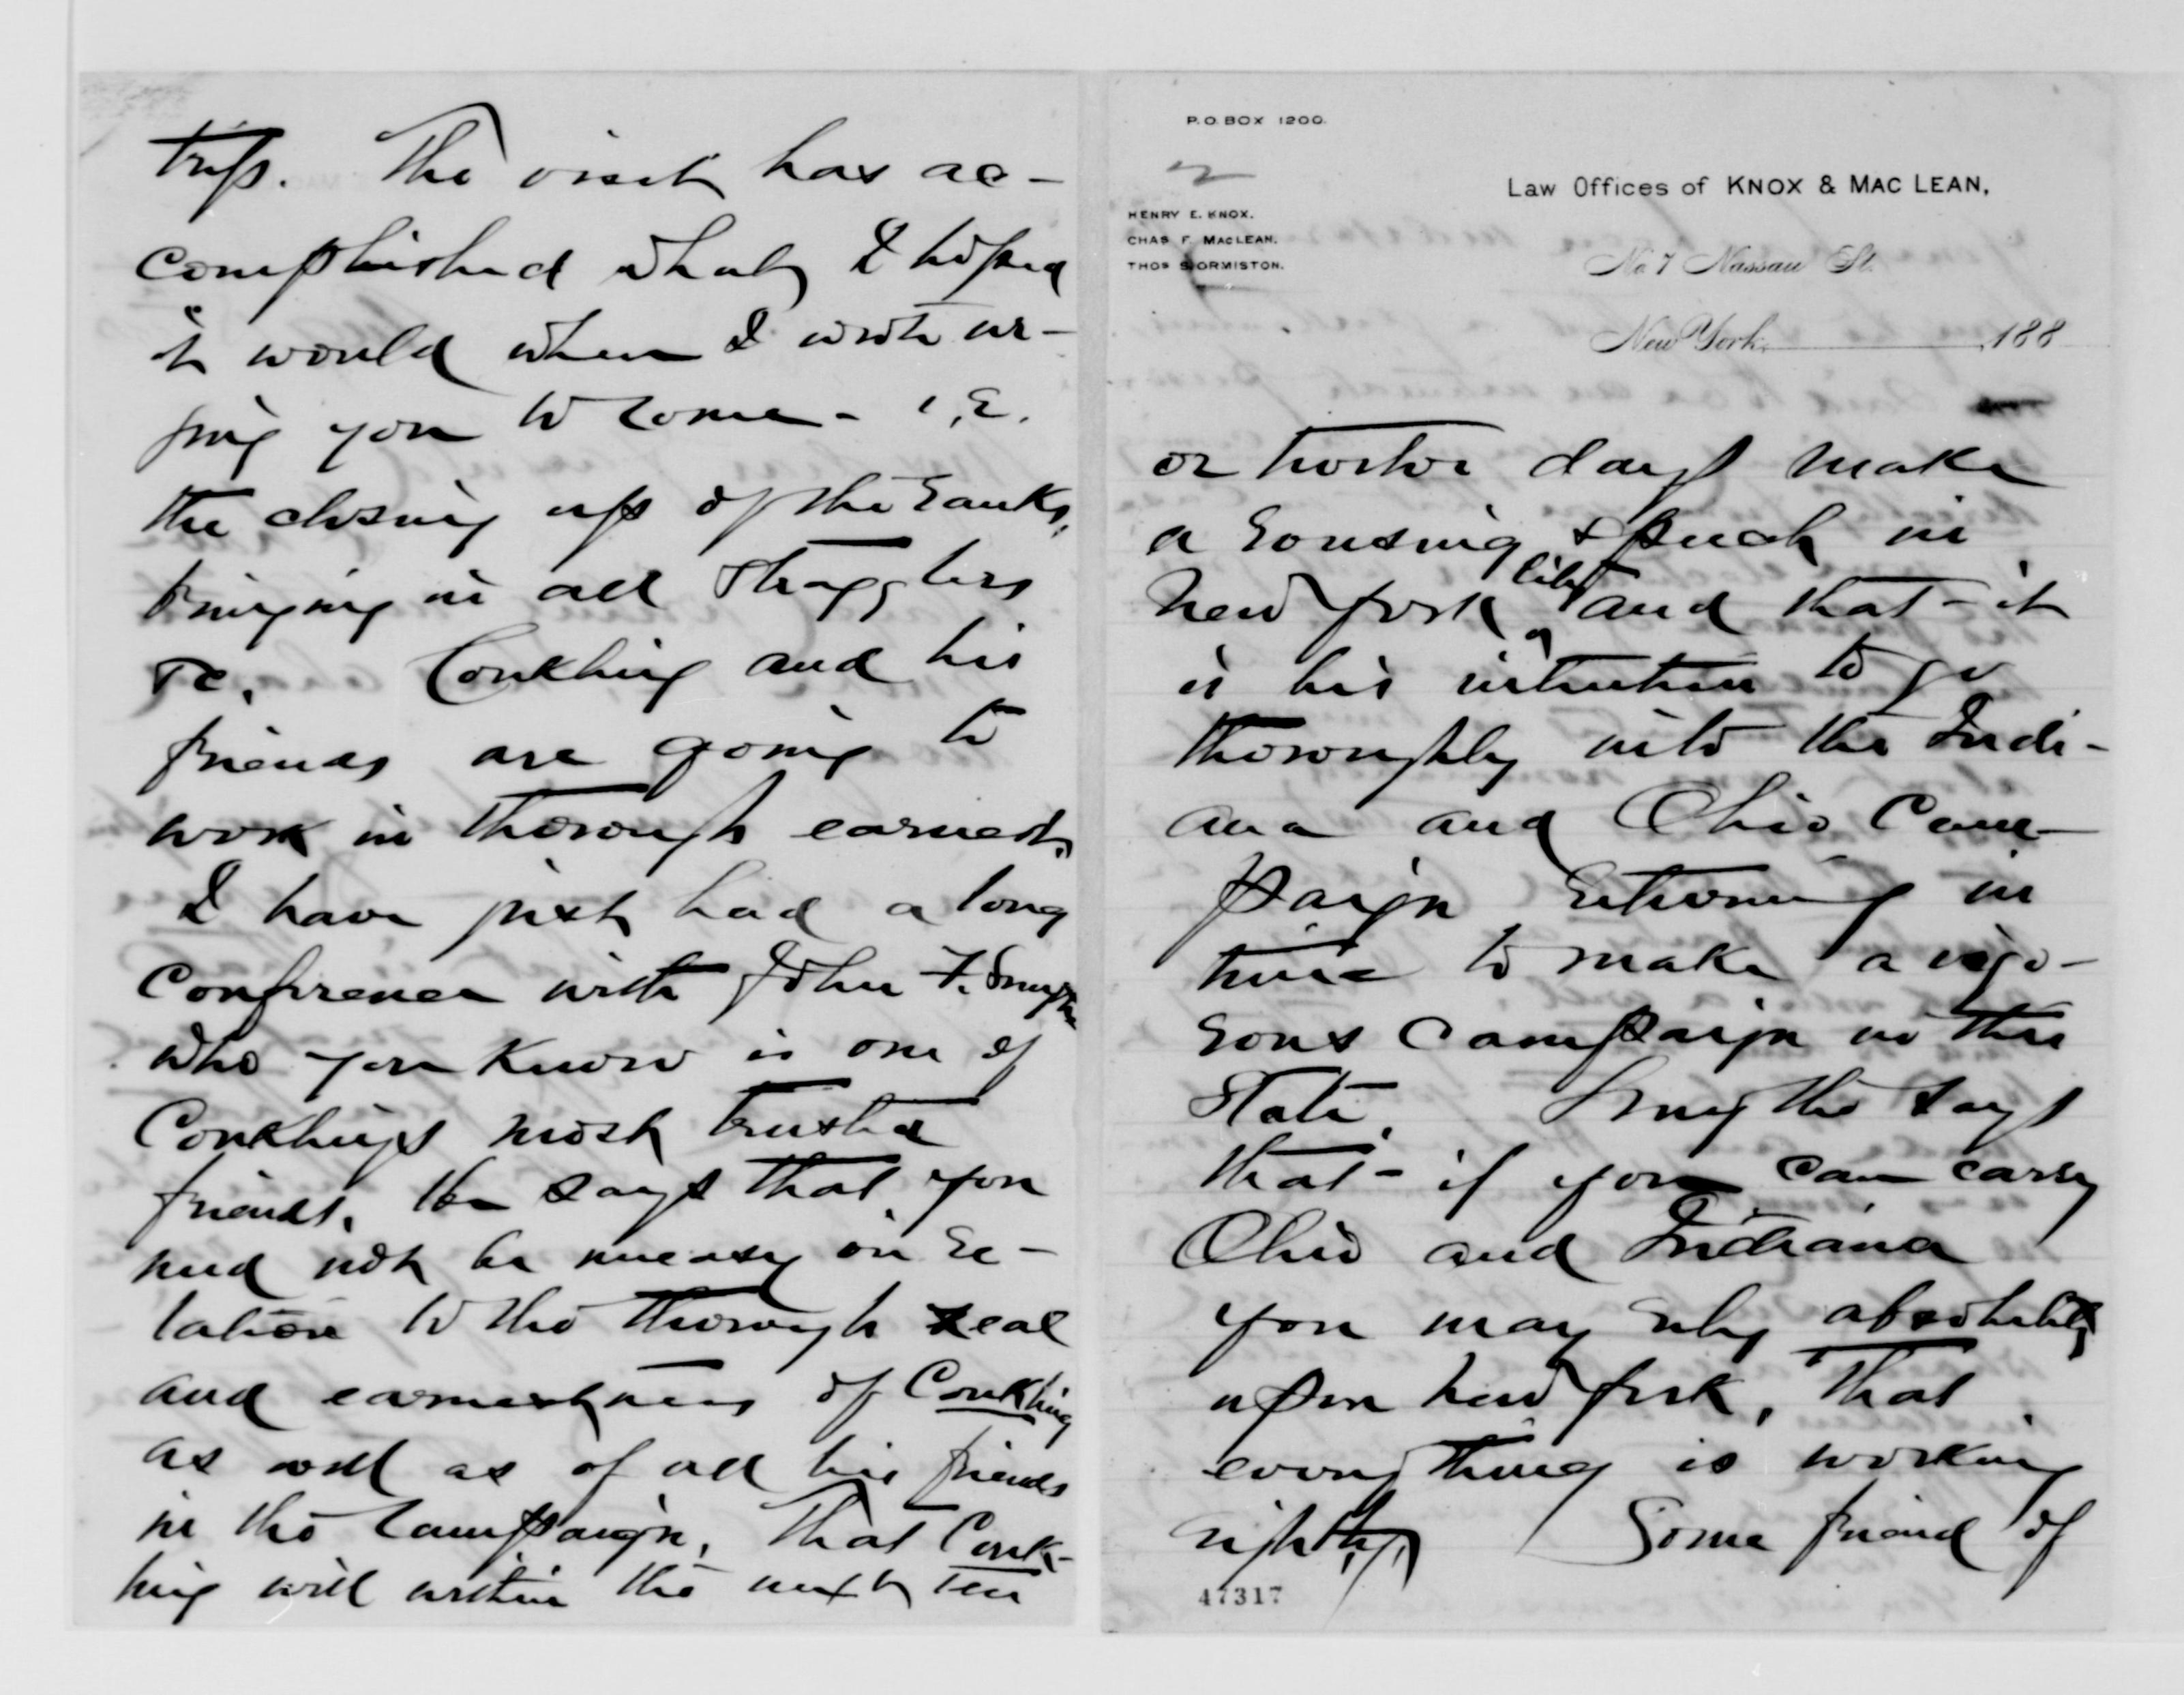 trip. The visit has ac-
complished what I hoped
it would when I wrote ur-
ging you to come - i.e.
the closing up of the ranks,
bringing in all stragglers
&c. Conkling and his
friends are going to
work in thorough earnest.
I have just had a long
conference with John F. Smyth
who you know is one of
Conklings most trusted
friends. He says that you
need not be uneasy in re-
lation to the thorough zeal
and earnestness of Conkling
as well as of all his friends
in the campaign. That Conk-
ling will within the next ten
P.O. BOX 1200.
2
Law Offices of KNOX & MAC LEAN,
HENRY E. KNOX.
CHAS F. MACLEAN.
THOS S ORMISTON.
No 7 Nassau St.
New York, 188
or twelve days make
a rousing speech in
New York city and that - it
is his intention to go
thoroughly into the Indi-
ana and Ohio Cam-
paign returning in
time to make a vigo-
rous campaign in this
State. Smythe says
that - if you can carry
Ohio and Indiana
you may rely absolutely
upon New York, that
everything is working
rightly. Some friend of
47317